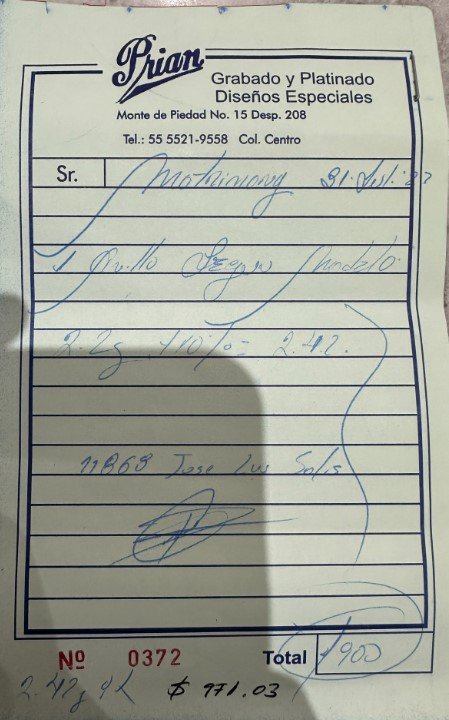 Prian
Grabado y Platinado
Diseños Especiales
Monte de Piedad No. 15 Desp. 208
Tel.: 55 5521-9558 Col. Centro
Sr. Matrimony
1 Anillo Según Modelo
2.2g +10% = 2.42.
11868 Jose Luis Solis
Nº 0372 Total $900
2.42g $ 971.03